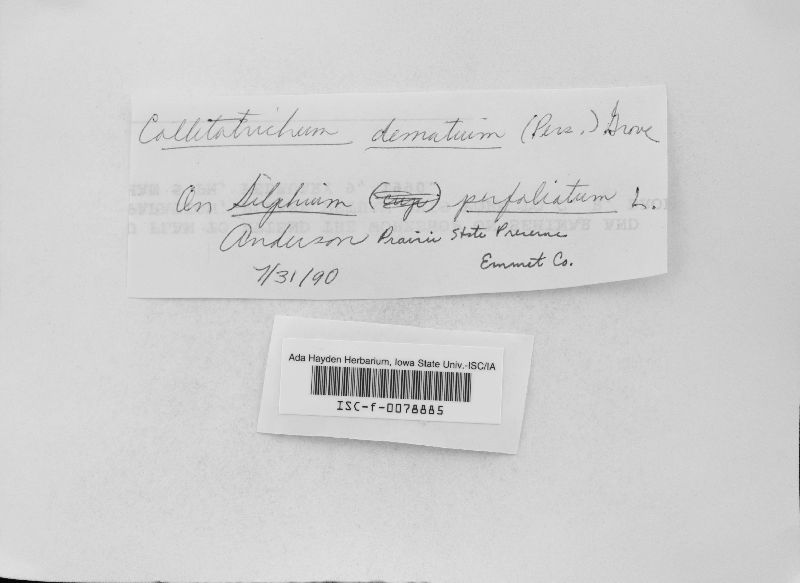 Collitotrichum dematium (Pers.) Grove
On Silphium perfoliatum L.
Anderson Prairie State Preserve
Emmet Co.
7/31/90
Ada Hayden Herbarium, Iowa State Univ.-ISC/IA
ISC-f-0078885